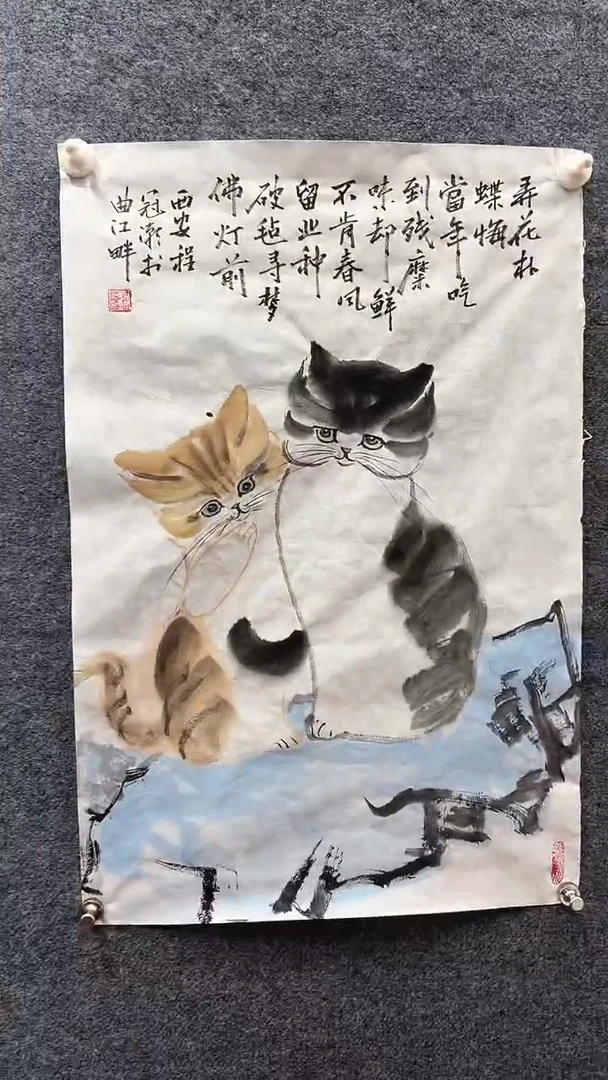 弄花朴
蝶悔
當年吃
到残糜
味却鲜
不肯春风
留业种
破毡寻梦
佛灯前
西安程
冠潮书
曲江畔